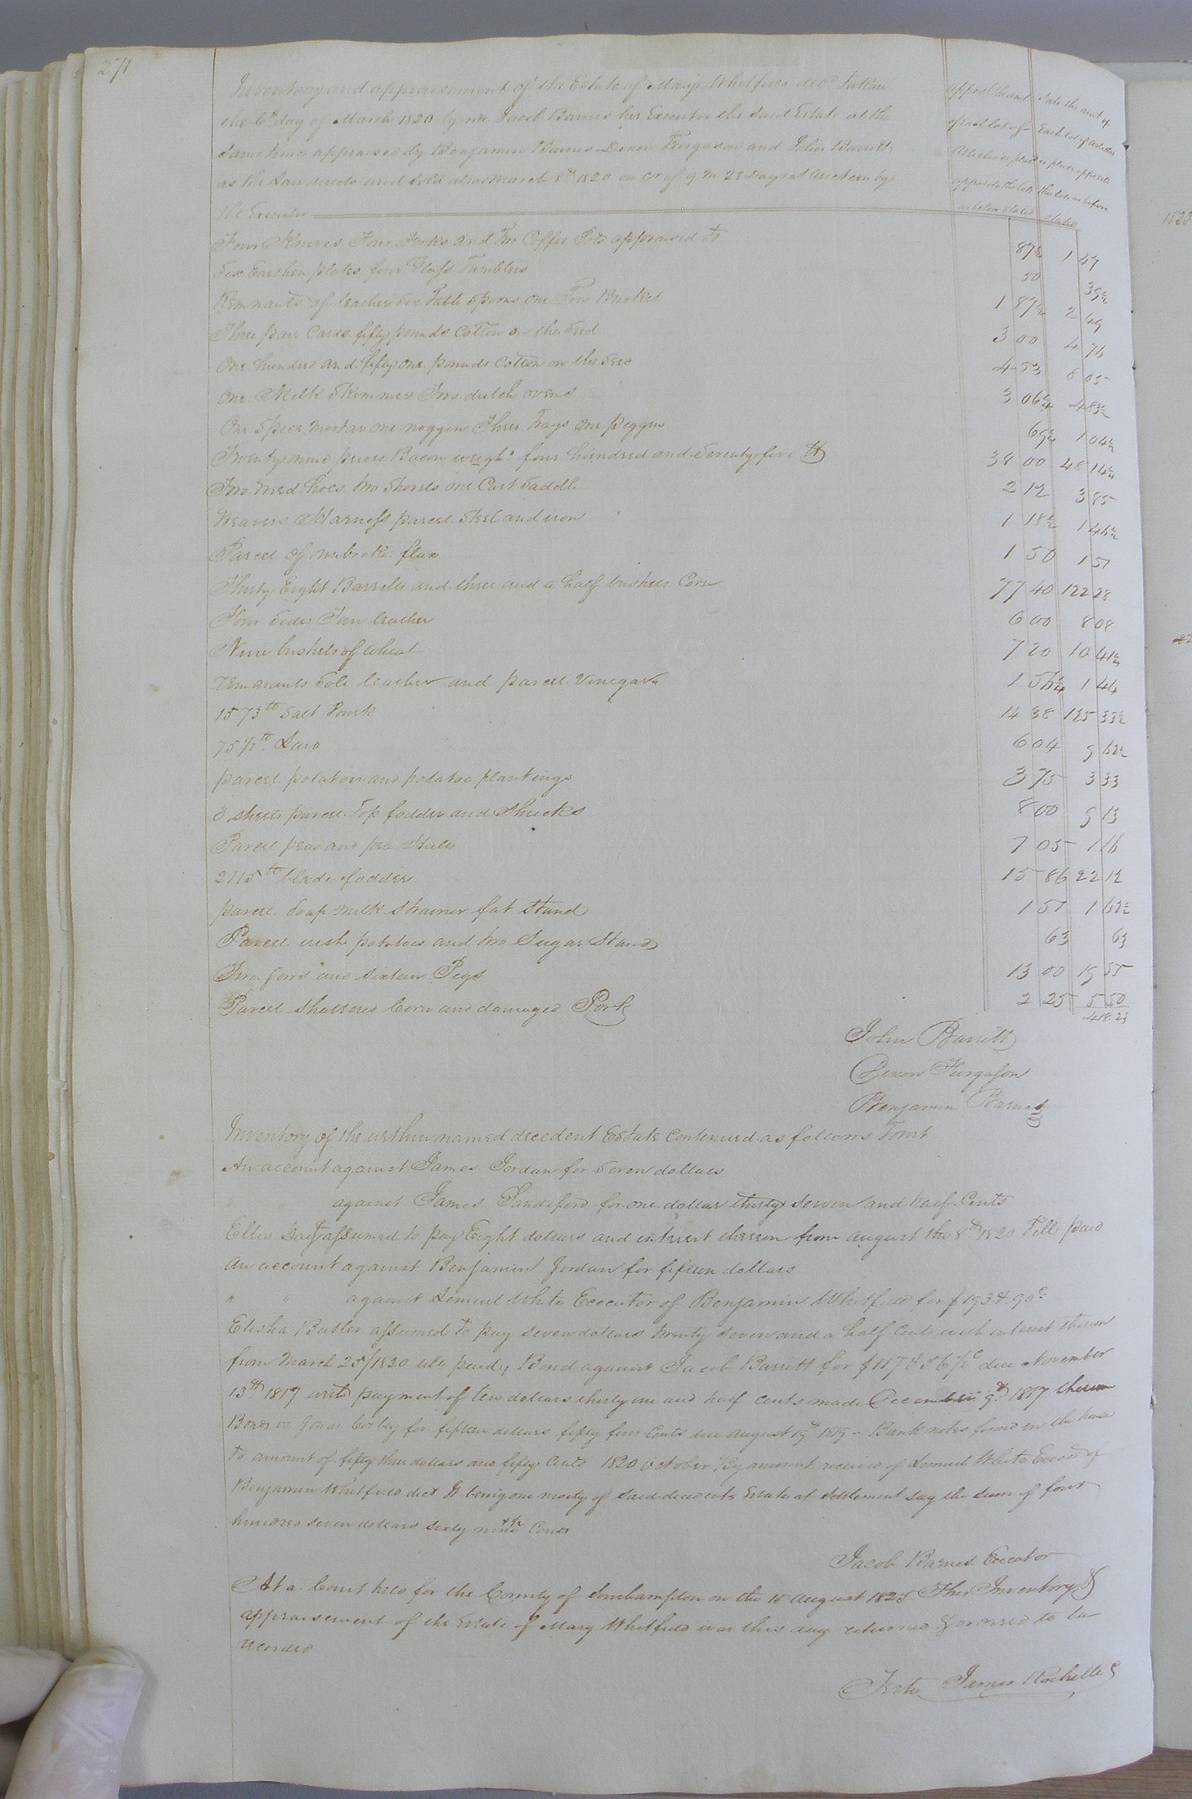 271
Inventory and appraisement of the Estate of Mary Whitfield decd taken
the 6th day of March 1820 by me Jacob Barnes her Executor the said Estate at the
same time appraised by Benjamin Barnes Dixon Ferguson and John Barrett
as the law directs and sold also March 8th 1820 on Cr of 9 m 28 days at Auction by
the Executor
appraisd the amt of each lot of Articles opposite the lots
Sale the amt of Each lot of articles
Four Knives Four Forks and Two Coffee Pots appraised to 87½ 1 49
Six Earthen plates four Glass Tumblers 50 39½
Remnants of leather Six Table Spoons one Tin Bucket 1 87½ 2 49
Three pair Cards fifty pounds Cotton in the Seed 3 00 4 76
One hundred and fifty one pounds Cotton in the Seed 4 53 6 05
One Milk Skimmer Two dutch ovens 3 06¼ 4 83½
One Spice mortar one noggin Three Trays one piggin 69¼ 1 04½
Twenty nine pieces Bacon weighg four hundred and Seventy five lb 38 00 48 14¼
Two weed hoes two Shovels one Cart Saddle 2 12 3 85
Weavers Harness parcel Steel and iron 1 18½ 1 46½
Parcel of unbroke flax 1 50 1 51
Thirty Eight Barrels and three and a half bushels Corn 77 40 122 28
Four Sides Tan leather 6 00 8 08
Nine bushels of Wheat 7 20 10 41½
Remnants Sole leather and parcel Vinegar 1 56¼ 1 44
1573 lb Salt Pork 14 38 125 33½
75½ lb Lard 6 04 9 62½
parcel potatoes and potatoe plantings 3 75 3 33
3 sheets parcel Top fodder and Shucks 8 00 9 13
Parcel peas and pea Hulls 7 05 1 16
2115 lb blade fodder 15 86 22 12
parcel Soap milk strainer fat Stand 1 51 1 62½
Parcel irish potatoes and two Sugar Stands 63 63
Two Sows and sixteen Pigs 13 00 19 55
Parcel Shattered Corn and damaged Pork 2 25 5 50
418.23
John Barrett
Dixon Ferguson
Benjamin Barnes
Inventory of the within named decedent Estate Continued as follows Towit
An account against James Jordan for Seven dollars
" " against James Sandiford for one dollar thirty seven and half Cents
Ellis assumed to pay Eight dollars and interest thereon from august the 8th 1820 Till paid
An account against Benjamin Jordan for fifteen dollars
" " against Lemuel White Executor of Benjamin Whitfield for $193 & 90c
Elisha Butler assumed to pay seven dollars twenty seven and a half Cents with interest thereon
from March 25/1820 till paid, Bond against Jacob Barrett for $117 & 56½c due November
13th 1817 with payment of ten dollars thirty one and half cents made December 9th 1817 thereon
for fifteen dollars fifty four Cents due August 19th 1819 - Bank notes found in the house
to amount of fifty three dollars and fifty Cents 1820 October, By amount received of Lemuel White Exor of
Benjamin Whitfield decd It being one moity of said decedents Estate at Settlement say the sum of four
hundred seven dollars sixty nine Cents
Jacob Barnes Executor
At a Court held for the County of Southampton on the 15 August 1825 This Inventory &
appraisement of the Estate of Mary Whitfield was this day returned & ordered to be
recorded
Teste James Rochelle C